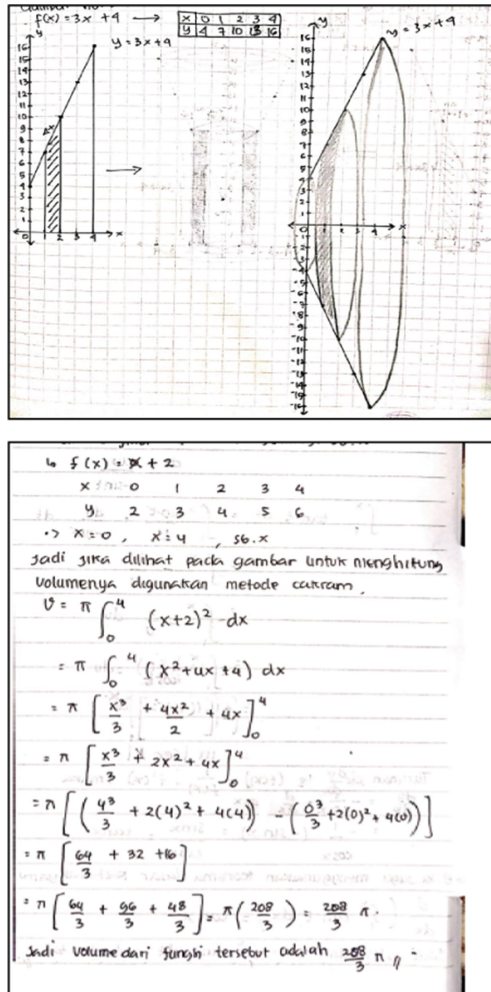 f(x) = 3x + 4 →
x 0 1 2 3 4
y 4 7 10 13 16
y = 3x + 4
y = 3x + 4
↳ f(x) = x + 2
x 0 1 2 3 4
y 2 3 4 5 6
x = 0, x = 4, sb. x
Jadi jika dilihat pada gambar untuk menghitung
volumenya digunakan metode cakram.
V = π ∫₀⁴ (x+2)² dx
= π ∫₀⁴ (x² + 4x + 4) dx
= π [x³/3 + 4x²/2 + 4x]₀⁴
= π [x³/3 + 2x² + 4x]₀⁴
= π [(4³/3 + 2(4)² + 4(4)) - (0³/3 + 2(0)² + 4(0))]
= π [64/3 + 32 + 16]
= π [64/3 + 96/3 + 48/3] = π (208/3) = 208/3 π.
Jadi volume dari fungsi tersebut adalah 208/3 π //